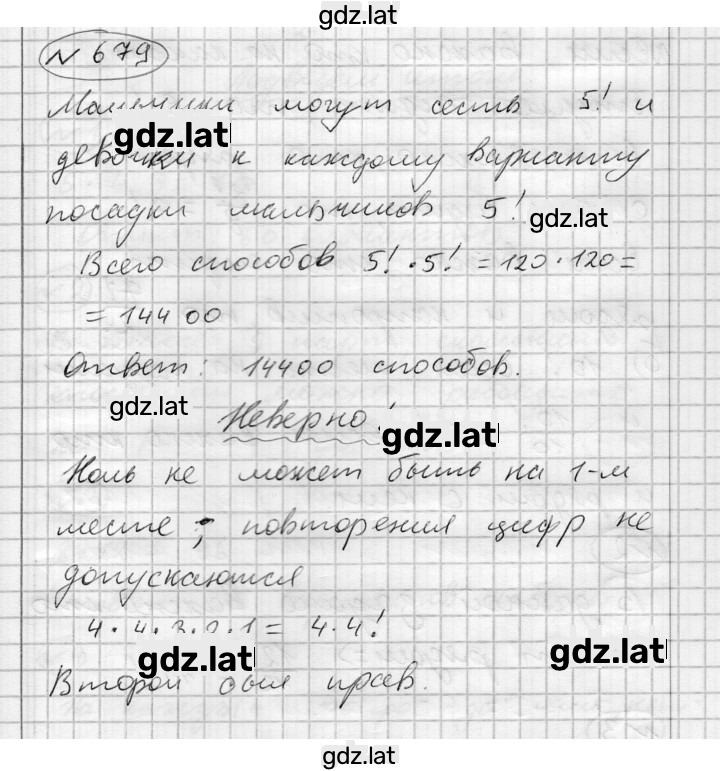 gdz.lat
N 679
Мальчики могут сесть 5! и
gdz.lat
девочки к каждому варианту
посадки мальчиков 5!
gdz.lat
Всего способов 5! · 5! = 120 · 120 =
= 14400
Ответ: 14400 способов.
gdz.lat
Неверно!
gdz.lat
Ноль не может быть на 1-м
месте; повторения цифр не
допускаются
4 · 4 · 3 · 2 · 1 = 4 · 4!
gdz.lat
gdz.lat
Второй был прав.
gdz.lat